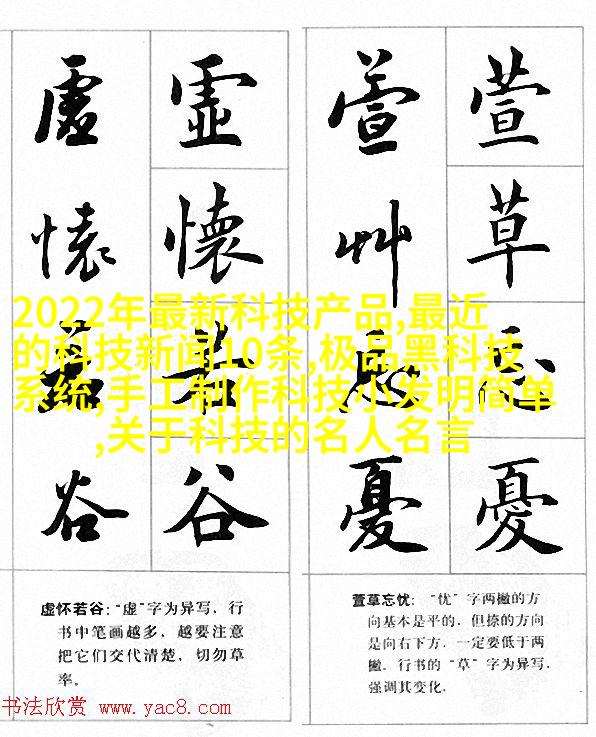 虚懷若谷
虚懷若谷
萱艸忘憂
萱草忘憂
2022年最新科技产品,最近
的科技新闻10条,极品黑科技
系统,手工制作科技小发明简单
,关于科技的名人名言
虚怀若谷:“虚”字为异写,行
书中笔画越多,越要注意
把它们交代清楚,切勿草
率。
萱草忘忧:“忧”字两撇的方
向基本是平的,但捺的方向
是向右下方,一定要低于两
撇。行书的“草”字为异写,
强调其变化。
书法欣赏 www.yac8.com